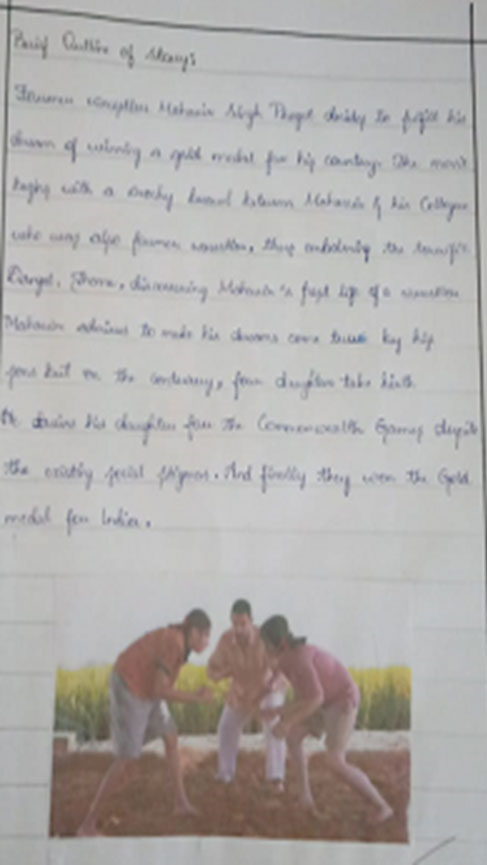 Brief Outline of Story:
Former wrestler Mahavir Singh Phogat decides to fulfill his
dream of winning a gold medal for his country. The movie
begins with a bout between Mahavir & his Collegue
who was also former wrestler, they
Dangal, Drama, discussing Mahavir's past life of a wrestler
Mahavir admires to make his dreams come true by his
sons but on the contrary, four daughter take birth
He trains his daughter for the Commonwealth Games despite
the existing social stigmas. And finally they won the Gold
medal for India.